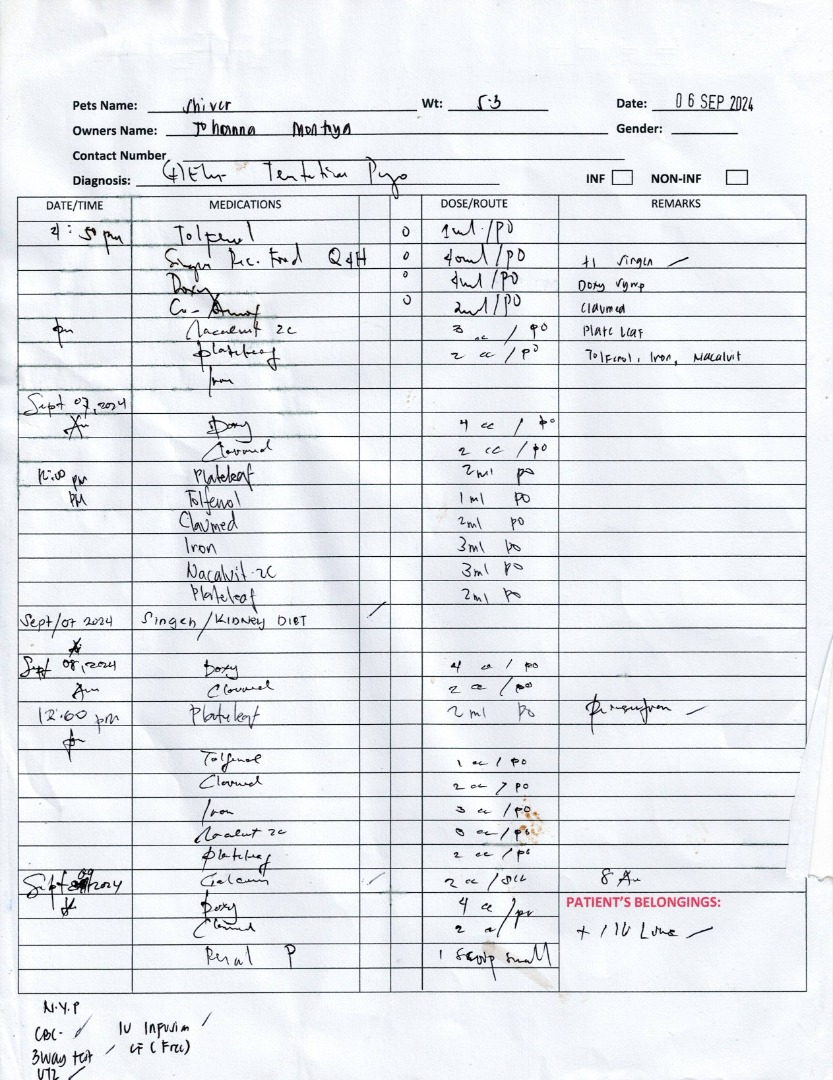 Pets Name: Shiver Wt: 5.3 Date: 06 SEP 2024
Owners Name: Johanna Montoya Gender:
Contact Number
Diagnosis: (+) Ehr Tentative Pyo INF NON-INF
DATE/TIME MEDICATIONS DOSE/ROUTE REMARKS
4:50 pm Tolfenol 0 1ml/PO
Singen Rec. Food Q4H 0 40ml/PO #1 Singen
Doxy 0 4ml/PO Doxy syrup
Co-Amox 0 2ml/PO Claumed
pm Nacalvit 2C 3 cc / po Plateleaf
plateleaf 2 cc / po Tolfenol, Iron, Nacalvit
Iron
Sept 07, 2024
Am Doxy 4 cc / po
Clavmed 2 cc / po
12:00 pm Plateleaf 2ml po
PM Tolfenol 1ml po
Claumed 2ml po
Iron 3ml po
Nacalvit-2C 3ml po
Plateleaf 2ml po
Sept/07 2024 Singen/KIDNEY DIET
Sept 08, 2024 Doxy 4 cc / po
Am Clavmed 2 cc / po
12:00 pm Plateleaf 2ml po
pm
Tolfenol 1 cc / po
Clavmed 2 cc / po
Iron 3 cc / po
Nacalvit 2c 3 cc / po
plateleaf 2 cc / po
Sept 09, 2024 Calcium 2 cc / 8 Am
Doxy 4 cc / po PATIENT'S BELONGINGS:
Clavmed 2 cc + 1 IV Line
Renal P 1 scoop small
N.Y.P
CBC- IV Infusion
3way test CF (Free)
UTZ